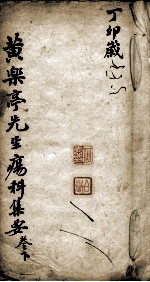 丁卯歲
黃樂亭先生瘍科集要
卷下